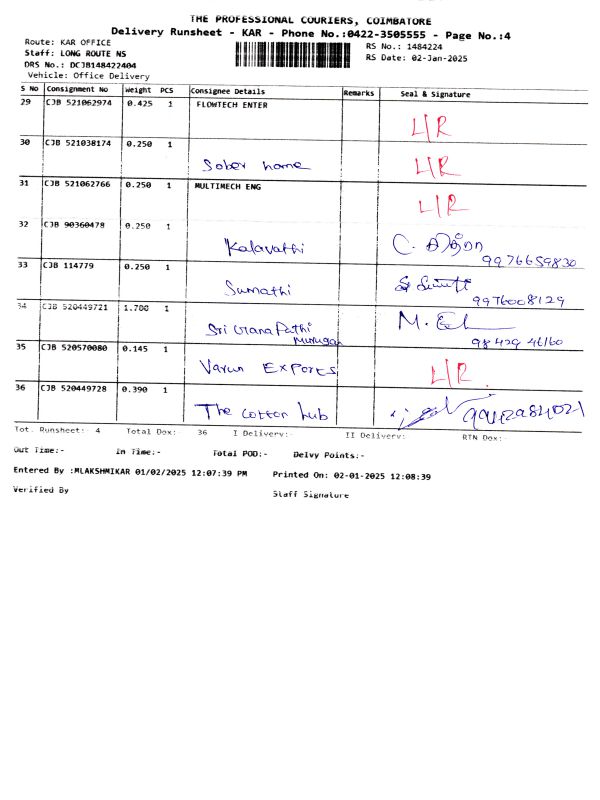 THE PROFESSIONAL COURIERS, COIMBATORE
Delivery Runsheet - KAR - Phone No.:0422-3505555 - Page No.:4
Route: KAR OFFICE
RS No.: 1484224
Staff: LONG ROUTE NS
RS Date: 02-Jan-2025
DRS No.: DCJB148422404
Vehicle: Office Delivery
S No Consignment No Weight PCS Consignee Details Remarks Seal & Signature
29 CJB 521062974 0.425 1 FLOWTECH ENTER
L/R
30 CJB 521038174 0.250 1
Sober home L/R
31 CJB 521062766 0.250 1 MULTIMECH ENG
L/R
32 CJB 90360478 0.250 1
Kalavathi C.
9976659830
33 CJB 114779 0.250 1
Sumathi
9976008129
34 CJB 520449721 1.700 1
Sri Gana Pathi M.
Murugan 98429 46160
35 CJB 520570080 0.145 1
Varun Exports L/R
36 CJB 520449728 0.390 1
The cotton hub
Tot. Runsheet:- 4 Total Dox: 36 I Delivery:- II Delivery:- RTN Dox:-
Out Time:- In Time:- Total POD:- Delvy Points:-
Entered By :MLAKSHMIKAR 01/02/2025 12:07:39 PM Printed On: 02-01-2025 12:08:39
Verified By Staff Signature